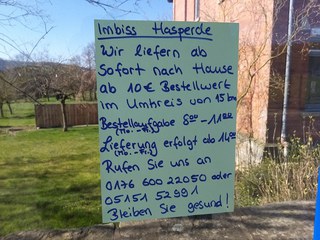 Imbiss Hasperde
Wir liefern ab
Sofort nach Hause
ab 10€ Bestellwert
Im Umkreis von 15 km
Bestellaufgabe 8:00 - 11:00
(Mo. - Fr.)
Lieferung erfolgt ab 14:00
(Mo. - Fr.)
Rufen Sie uns an
0176 600 22050 oder
05151 52991
Bleiben Sie gesund!